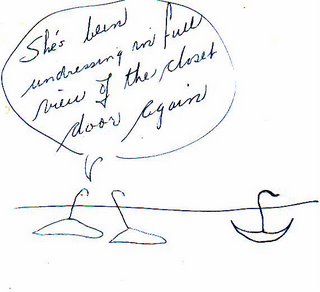 She's been
undressing in full
view of the closet
door again